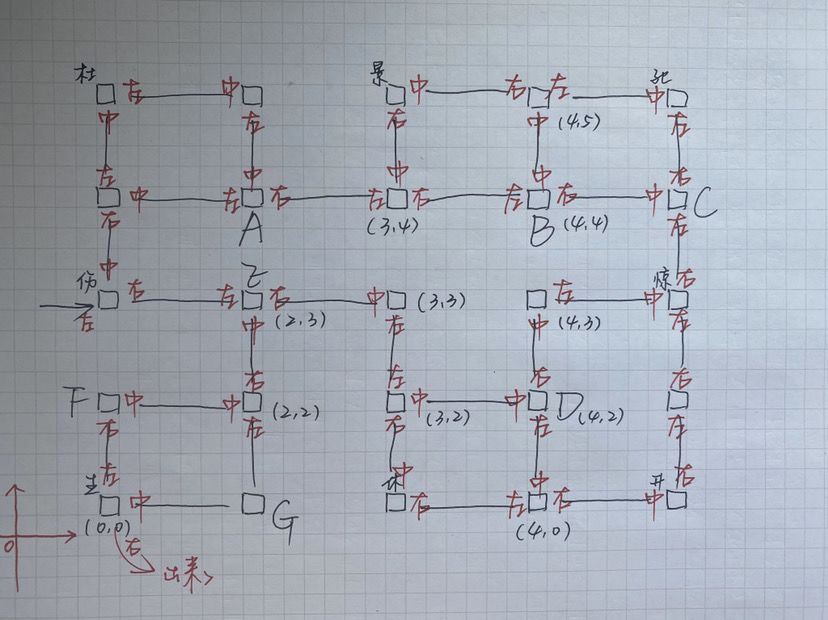 杜 左 中 景 中 右 左 死 中
中 左 左 中 (4,5) 左
左 中 中 中 右
中 左 右 左 右 左 右 中 C
右 A (3,4) B (4,4) 左
中 右
伤 右 左 Z 右 中 (3,3) 左 中 惊
右 (2,3) 左 (4,3) 左
中 中
右 左 右 右
F 中 中 (2,2) 中 (3,2) 中 D (4,2)
右 左 右 左 左
左 中 中 右
生 中 G 休 右 左 右 中 开
(0,0) (4,0)
0 右 出来